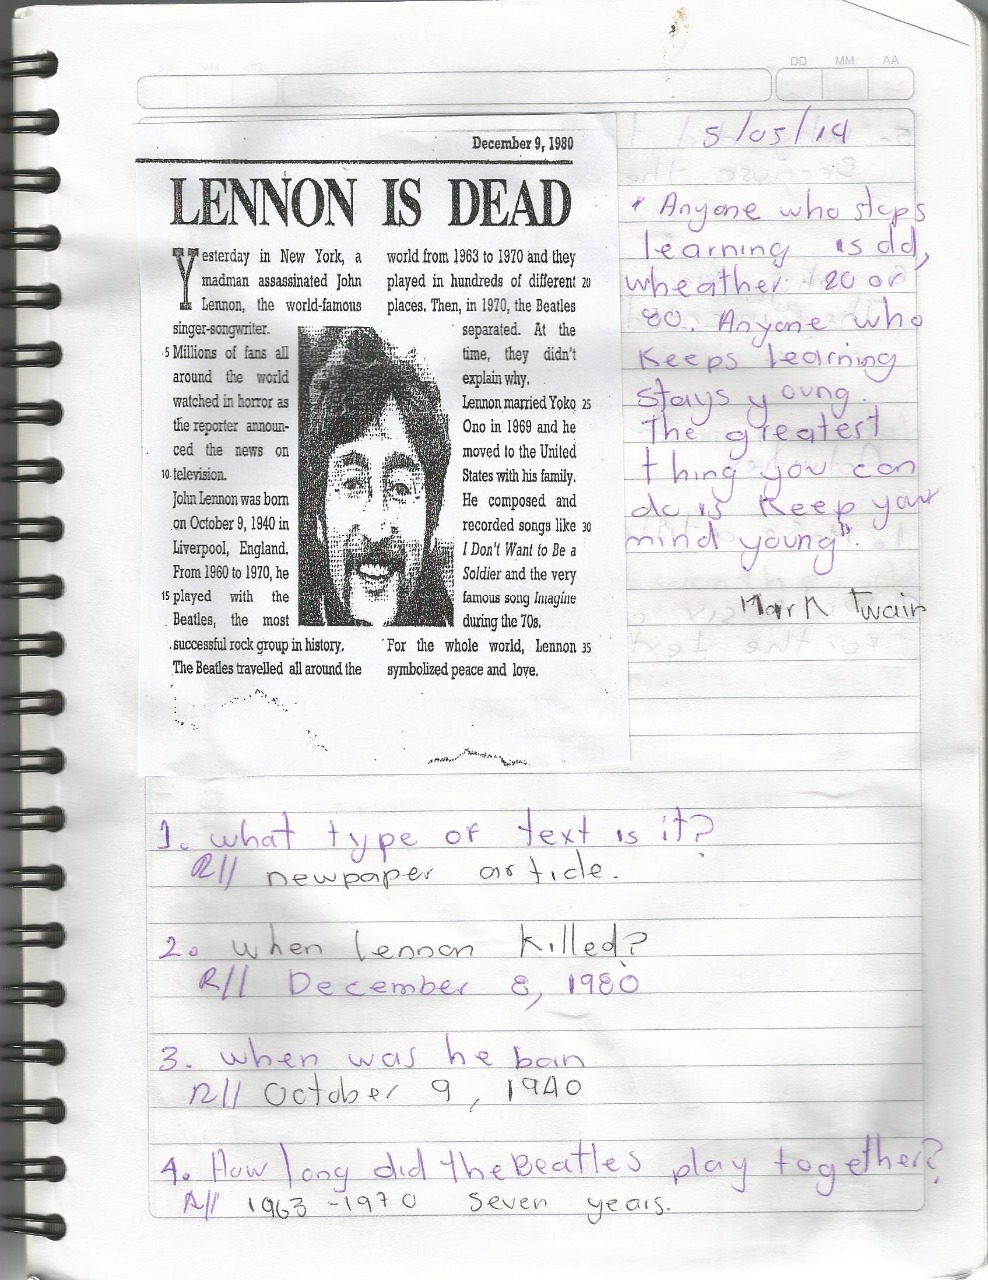 DD MM AA
5/05/14
December 9, 1980
LENNON IS DEAD
Yesterday in New York, a
madman assassinated John
Lennon, the world-famous
singer-songwriter.
5 Millions of fans all
around the world
watched in horror as
the reporter announ-
ced the news on
10 television.
John Lennon was born
on October 9, 1940 in
Liverpool, England.
From 1960 to 1970, he
15 played with the
Beatles, the most
successful rock group in history.
The Beatles travelled all around the
world from 1963 to 1970 and they
played in hundreds of different 20
places. Then, in 1970, the Beatles
separated. At the
time, they didn't
explain why.
Lennon married Yoko 25
Ono in 1969 and he
moved to the United
States with his family.
He composed and
recorded songs like 30
I Don't Want to Be a
Soldier and the very
famous song Imagine
during the 70s.
For the whole world, Lennon 35
symbolized peace and love.
" Anyone who stops
learning is old,
wheather 20 or
80. Anyone who
Keeps learning
stays young.
The greatest
thing you can
do is Keep your
mind young".
Mark Twain
1. what type of text is it?
R// newpaper article.
2. when lennon killed?
R// December 8, 1980
3. when was he ban
R// October 9, 1940
4. How long did the Beatles play together?
R// 1963-1970 seven years.